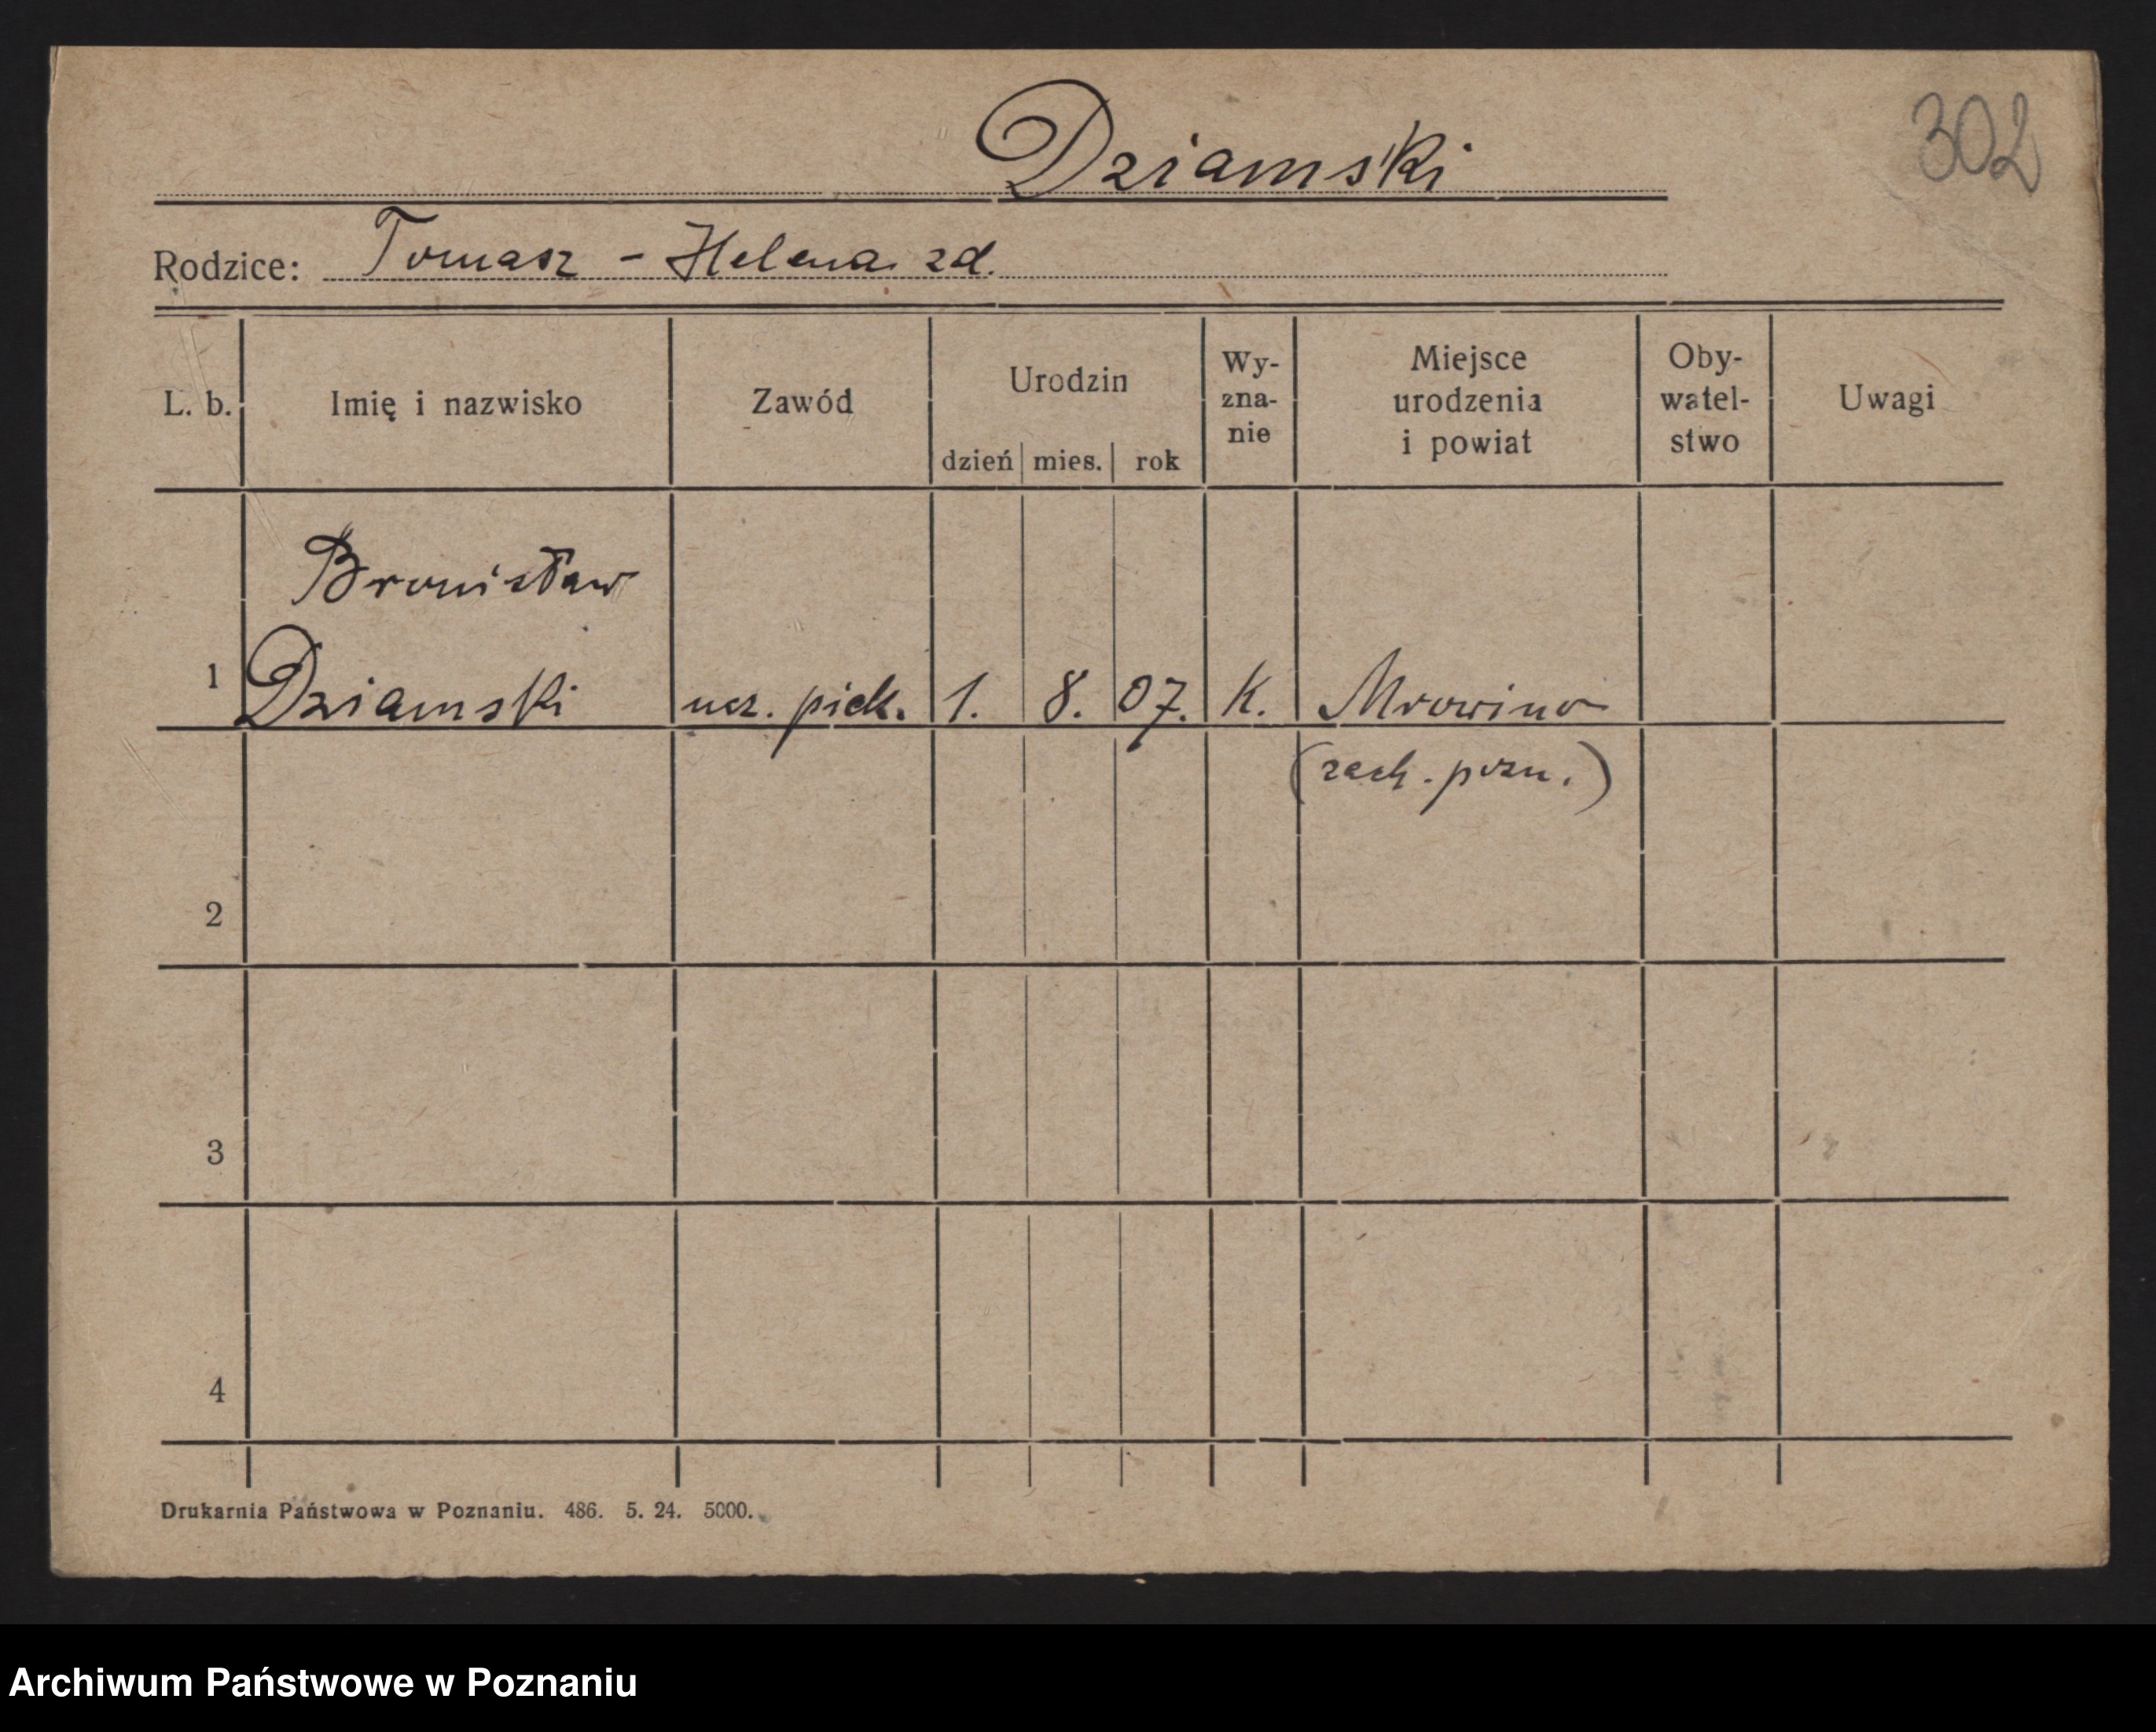 302
Dziamski
Rodzice: Tomasz - Helena zd.
L. b.
Imię i nazwisko
Zawód
Urodzin
dzień mies. rok
Wy-
zna-
nie
Miejsce
urodzenia
i powiat
Oby-
watel-
stwo
Uwagi
Bronisław
1 Dziamski ucz. piek. 1. 8. 07. K. Mrowino
(zach. pozn.)
2
3
4
Drukarnia Państwowa w Poznaniu. 486. 5. 24. 5000.
Archiwum Państwowe w Poznaniu